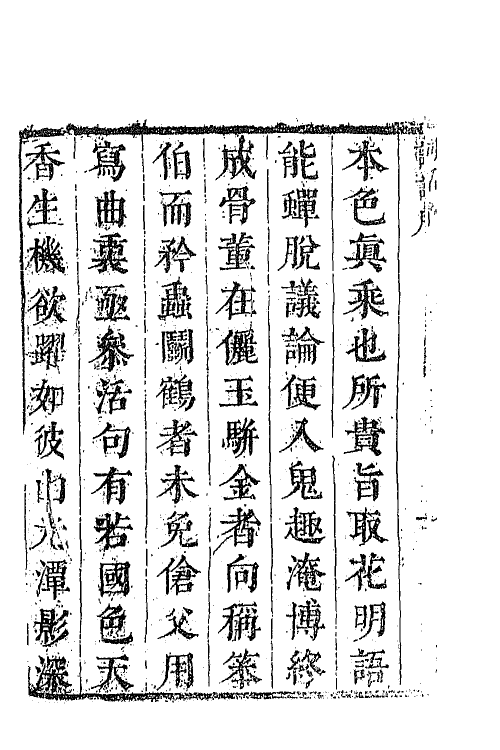 本色真乘也所貴旨取花明語
能蟬脫議論便入鬼趣淹博終
成骨董在儷玉駢金者向稱笨
伯而矜蟲鬬鶴者未免傖父用
寫曲衷亟參活句有若國色天
香生機欲躍如彼山光潭影深